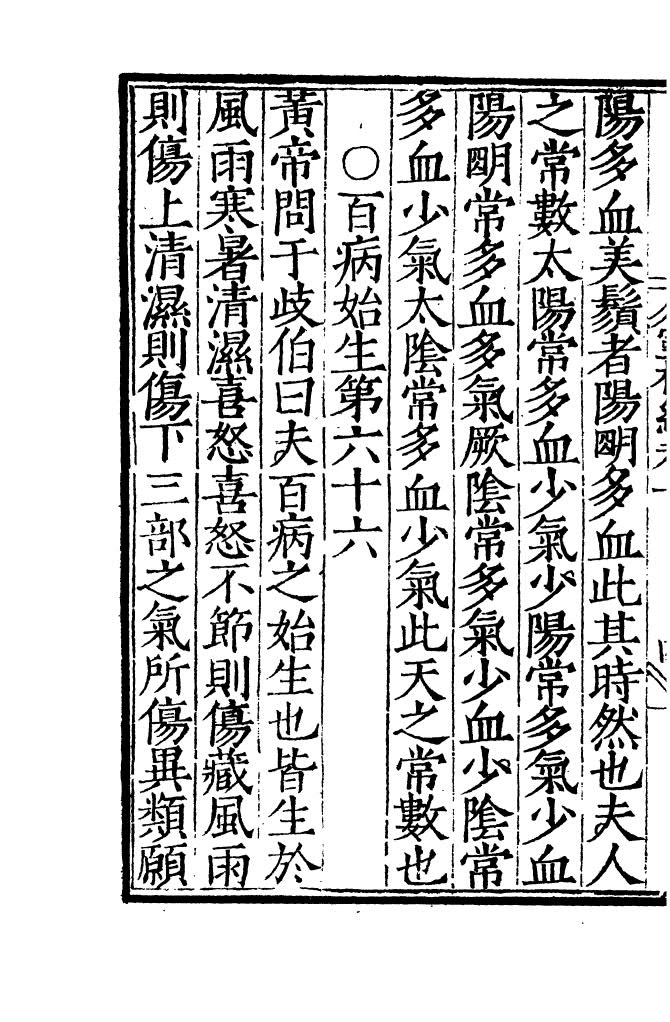 陽多血美鬚者陽明多血此其時然也夫人
之常數太陽常多血少氣少陽常多氣少血
陽明常多血多氣厥陰常多氣少血少陰常
多血少氣太陰常多血少氣此天之常數也
○百病始生第六十六
黃帝問于歧伯曰夫百病之始生也皆生於
風雨寒暑清濕喜怒喜怒不節則傷藏風雨
則傷上清濕則傷下三部之氣所傷異類願